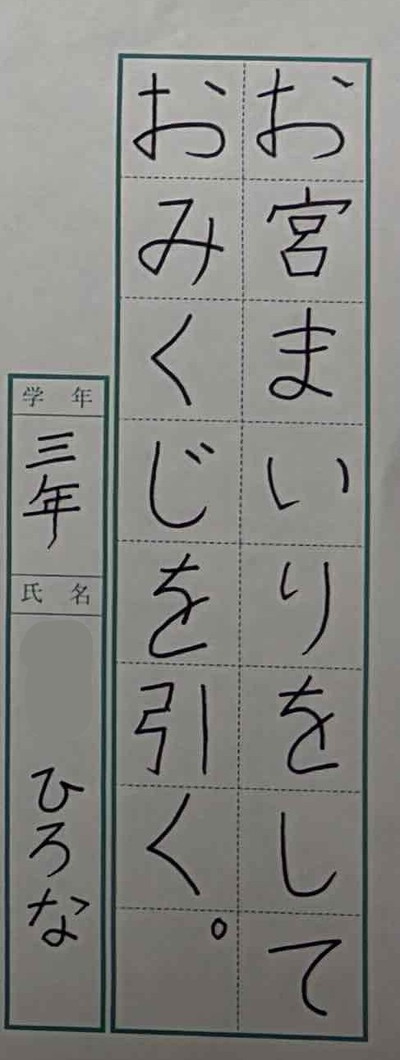 お宮まいりをして
おみくじを引く。
学年
三年
氏名
ひろな